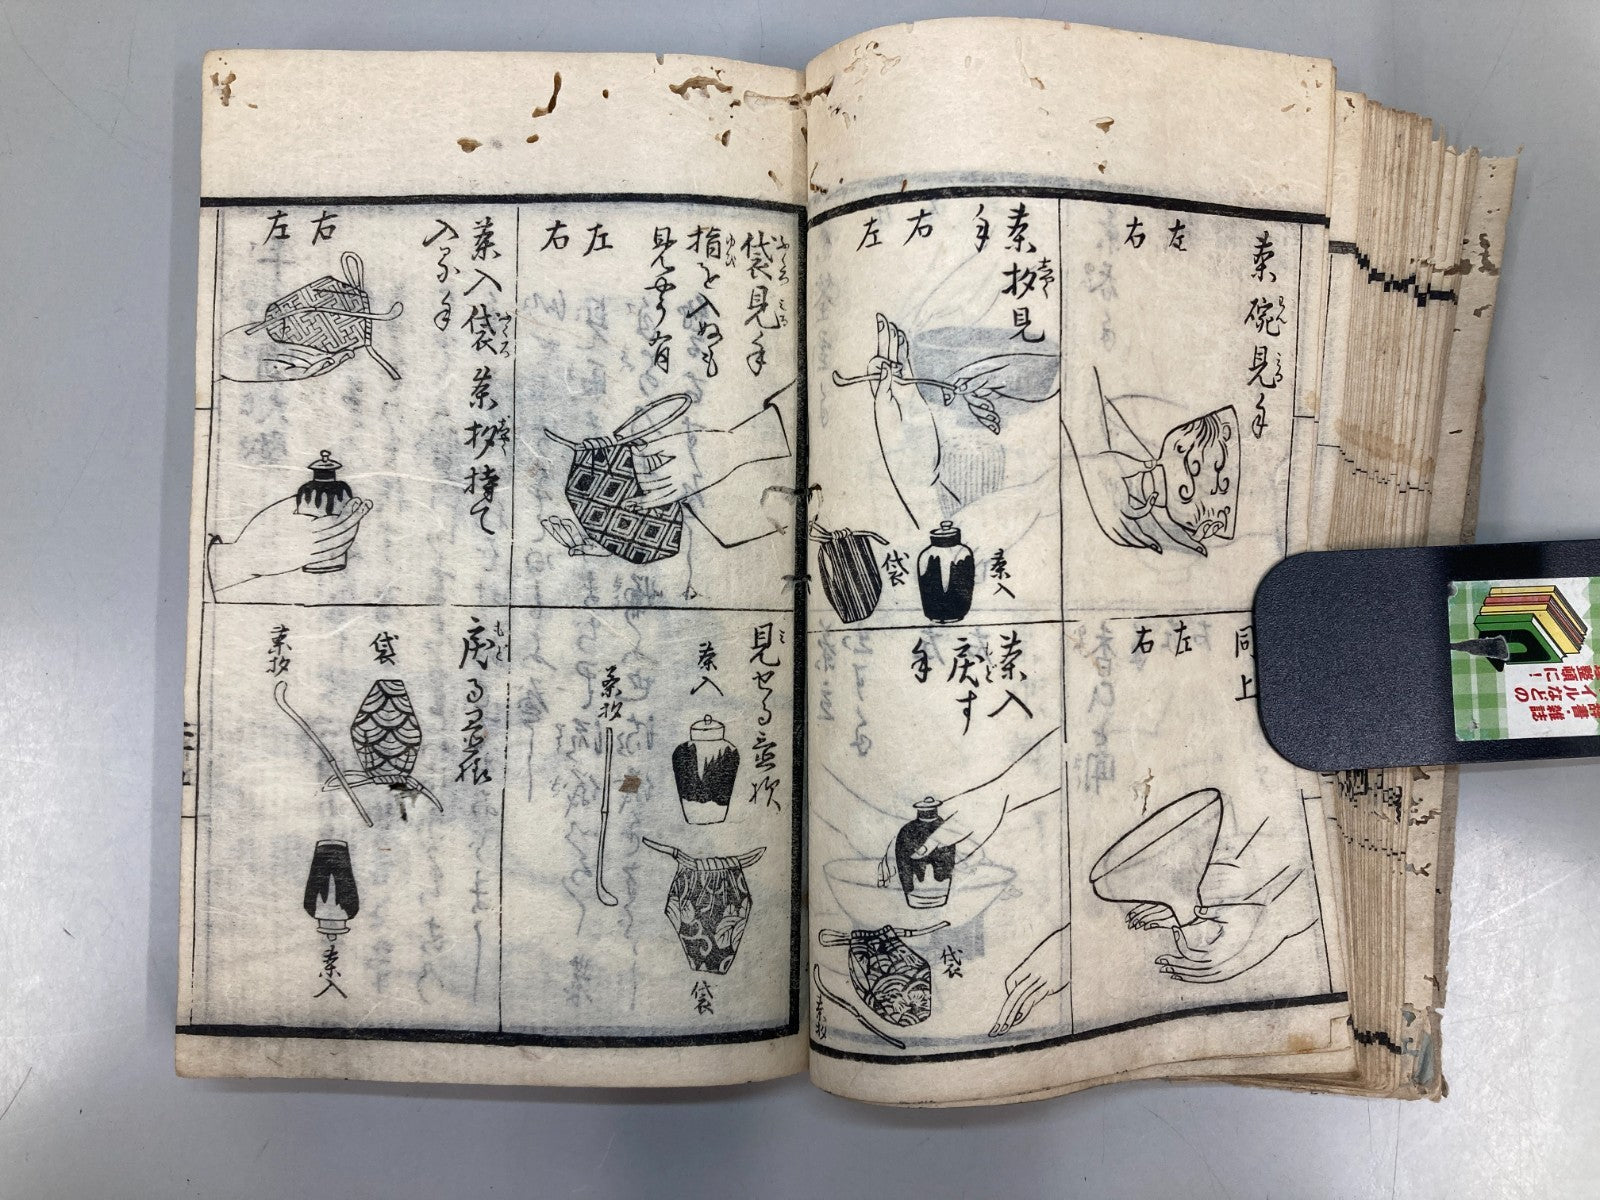 茶碗見手
左
右
同上
左
右
茶杓見
手
右
左
茶入
袋
茶入
戻す
手
袋
茶杓
袋見手
指を入ぬも
見やう有
左
右
見せる置様
茶入
茶杓
袋
茶入袋茶杓持て
入る手
右
左
戻る置様
袋
茶杓
茶入
書・雑誌
イルなどの
整頓に!